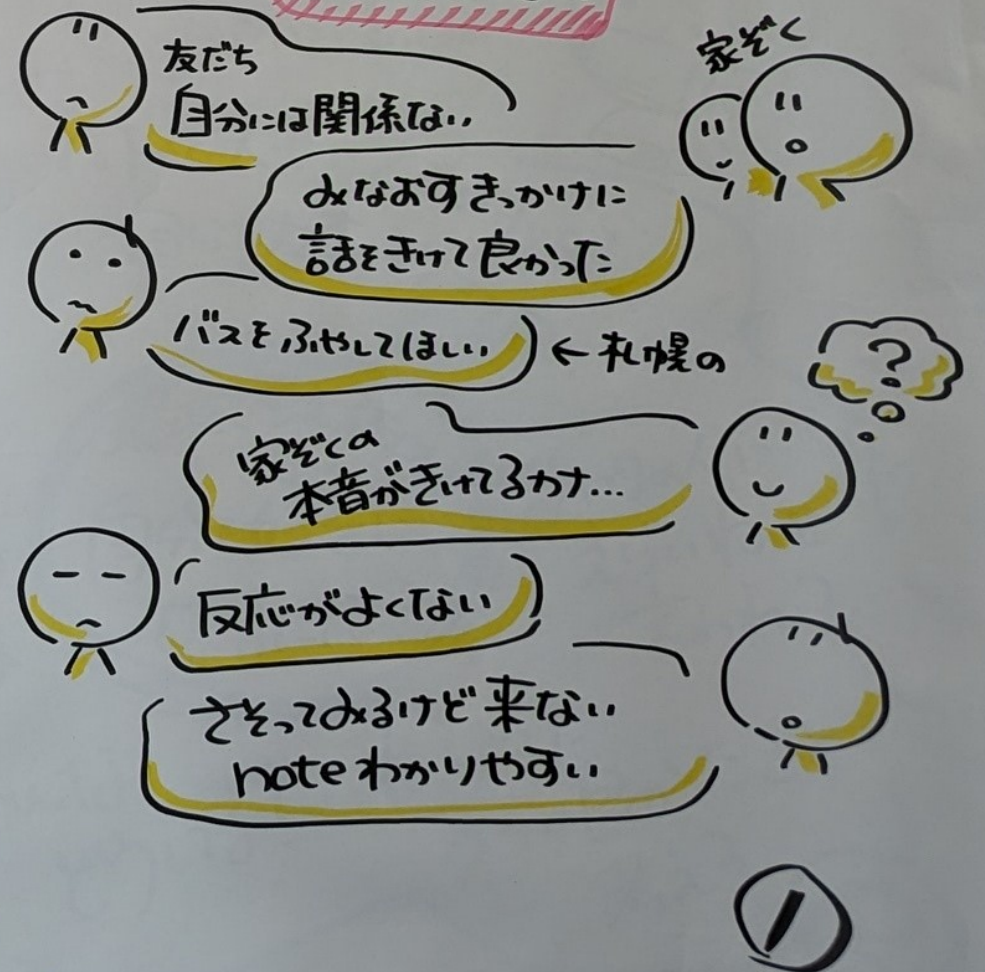 友だち
自分には関係ない
家ぞく
みなおすきっかけに
話をきけて良かった
バスをふやしてほしい
←札幌の
?
家ぞくの
本音がきけてるカナ...
反応がよくない
さそってみるけど来ない
noteわかりやすい
1